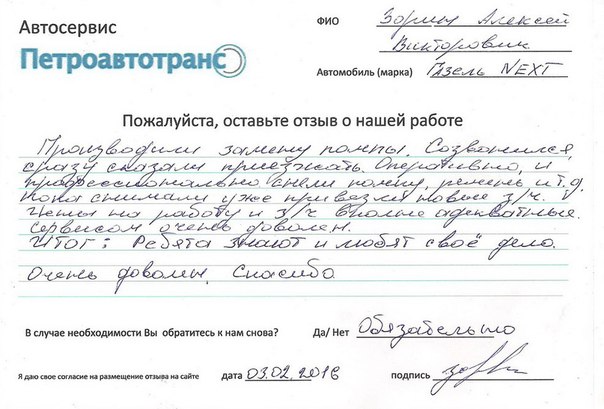 Автосервис
Петроавтотранс
ФИО Зорин Алексей
Викторович
Автомобиль (марка) Газель NEXT
Пожалуйста, оставьте отзыв о нашей работе
Производили замену помпы. Созвонился,
сразу сказали приезжать. Оперативно, и
профессионально сняли помпу, ремень и т.д.
пока снимали уже привезли новые з/ч.
Цены на работу и з/ч вполне адекватные.
Сервисом очень доволен.
Итог: Ребята знают и любят своё дело.
Очень доволен. Спасибо
В случае необходимости Вы обратитесь к нам снова? Да/ Нет Обязательно
Я даю свое согласие на размещение отзыва на сайте дата 03.02.2016 подпись